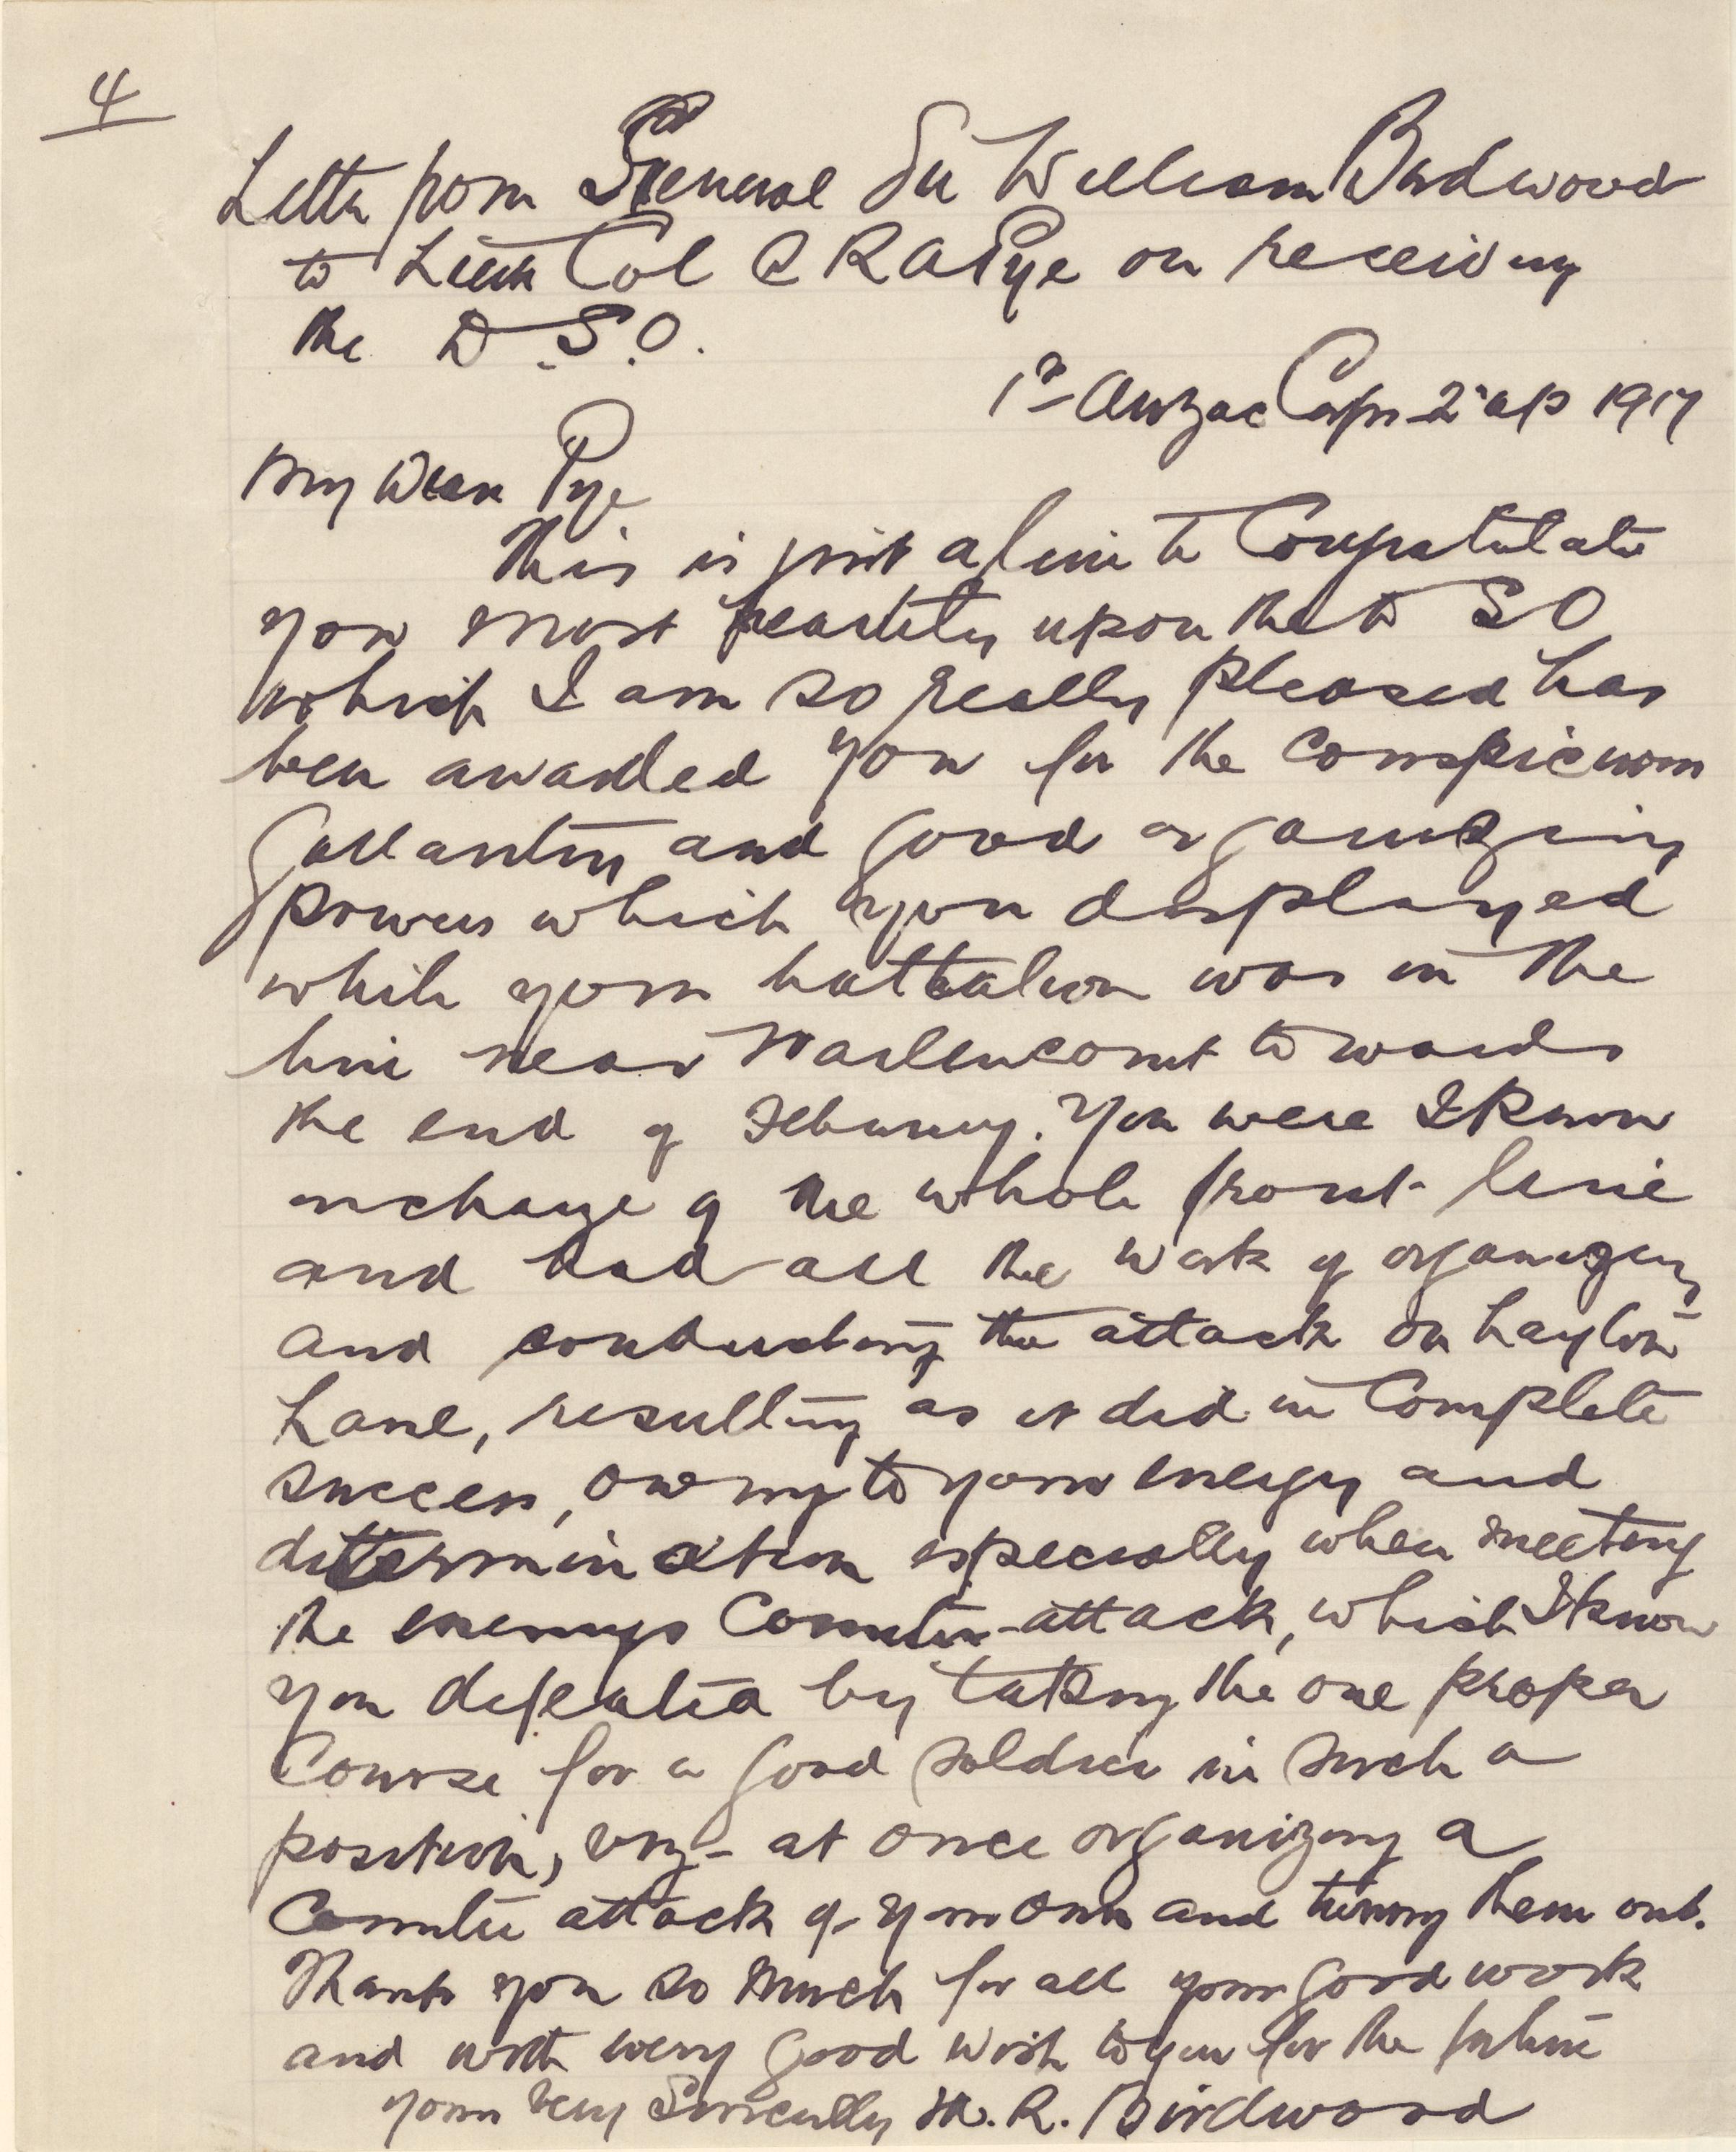 4
Letter from General Sir William Birdwood
to Lieut Col C R A Pye on receiving
the D.S.O.
1st Anzac Corps 2 Ap 1917
My Dear Pye
This is just a line to Congratulate
you most heartily upon the D S O
which I am so really pleased has
been awarded you for the conspicuous
Gallantry and good organizing
powers which you displayed
while your battalion was in the
line near Warlencourt towards
the end of February. You were I know
in charge of the whole front line
and had all the work of organizing
and conducting the attack on Layton
Lane, resulting as it did in Complete
success, owing to your energy and
determination especially when meeting
the enemys Counter-attack, which I know
you defeated by taking the one proper
Course for a good soldier in such a
position, viz- at once organizing a
Counter attack of your own and turning them out.
Thank you so much for all your good work
and with every good wish to you for the future
yours very Sincerely W. R. Birdwood